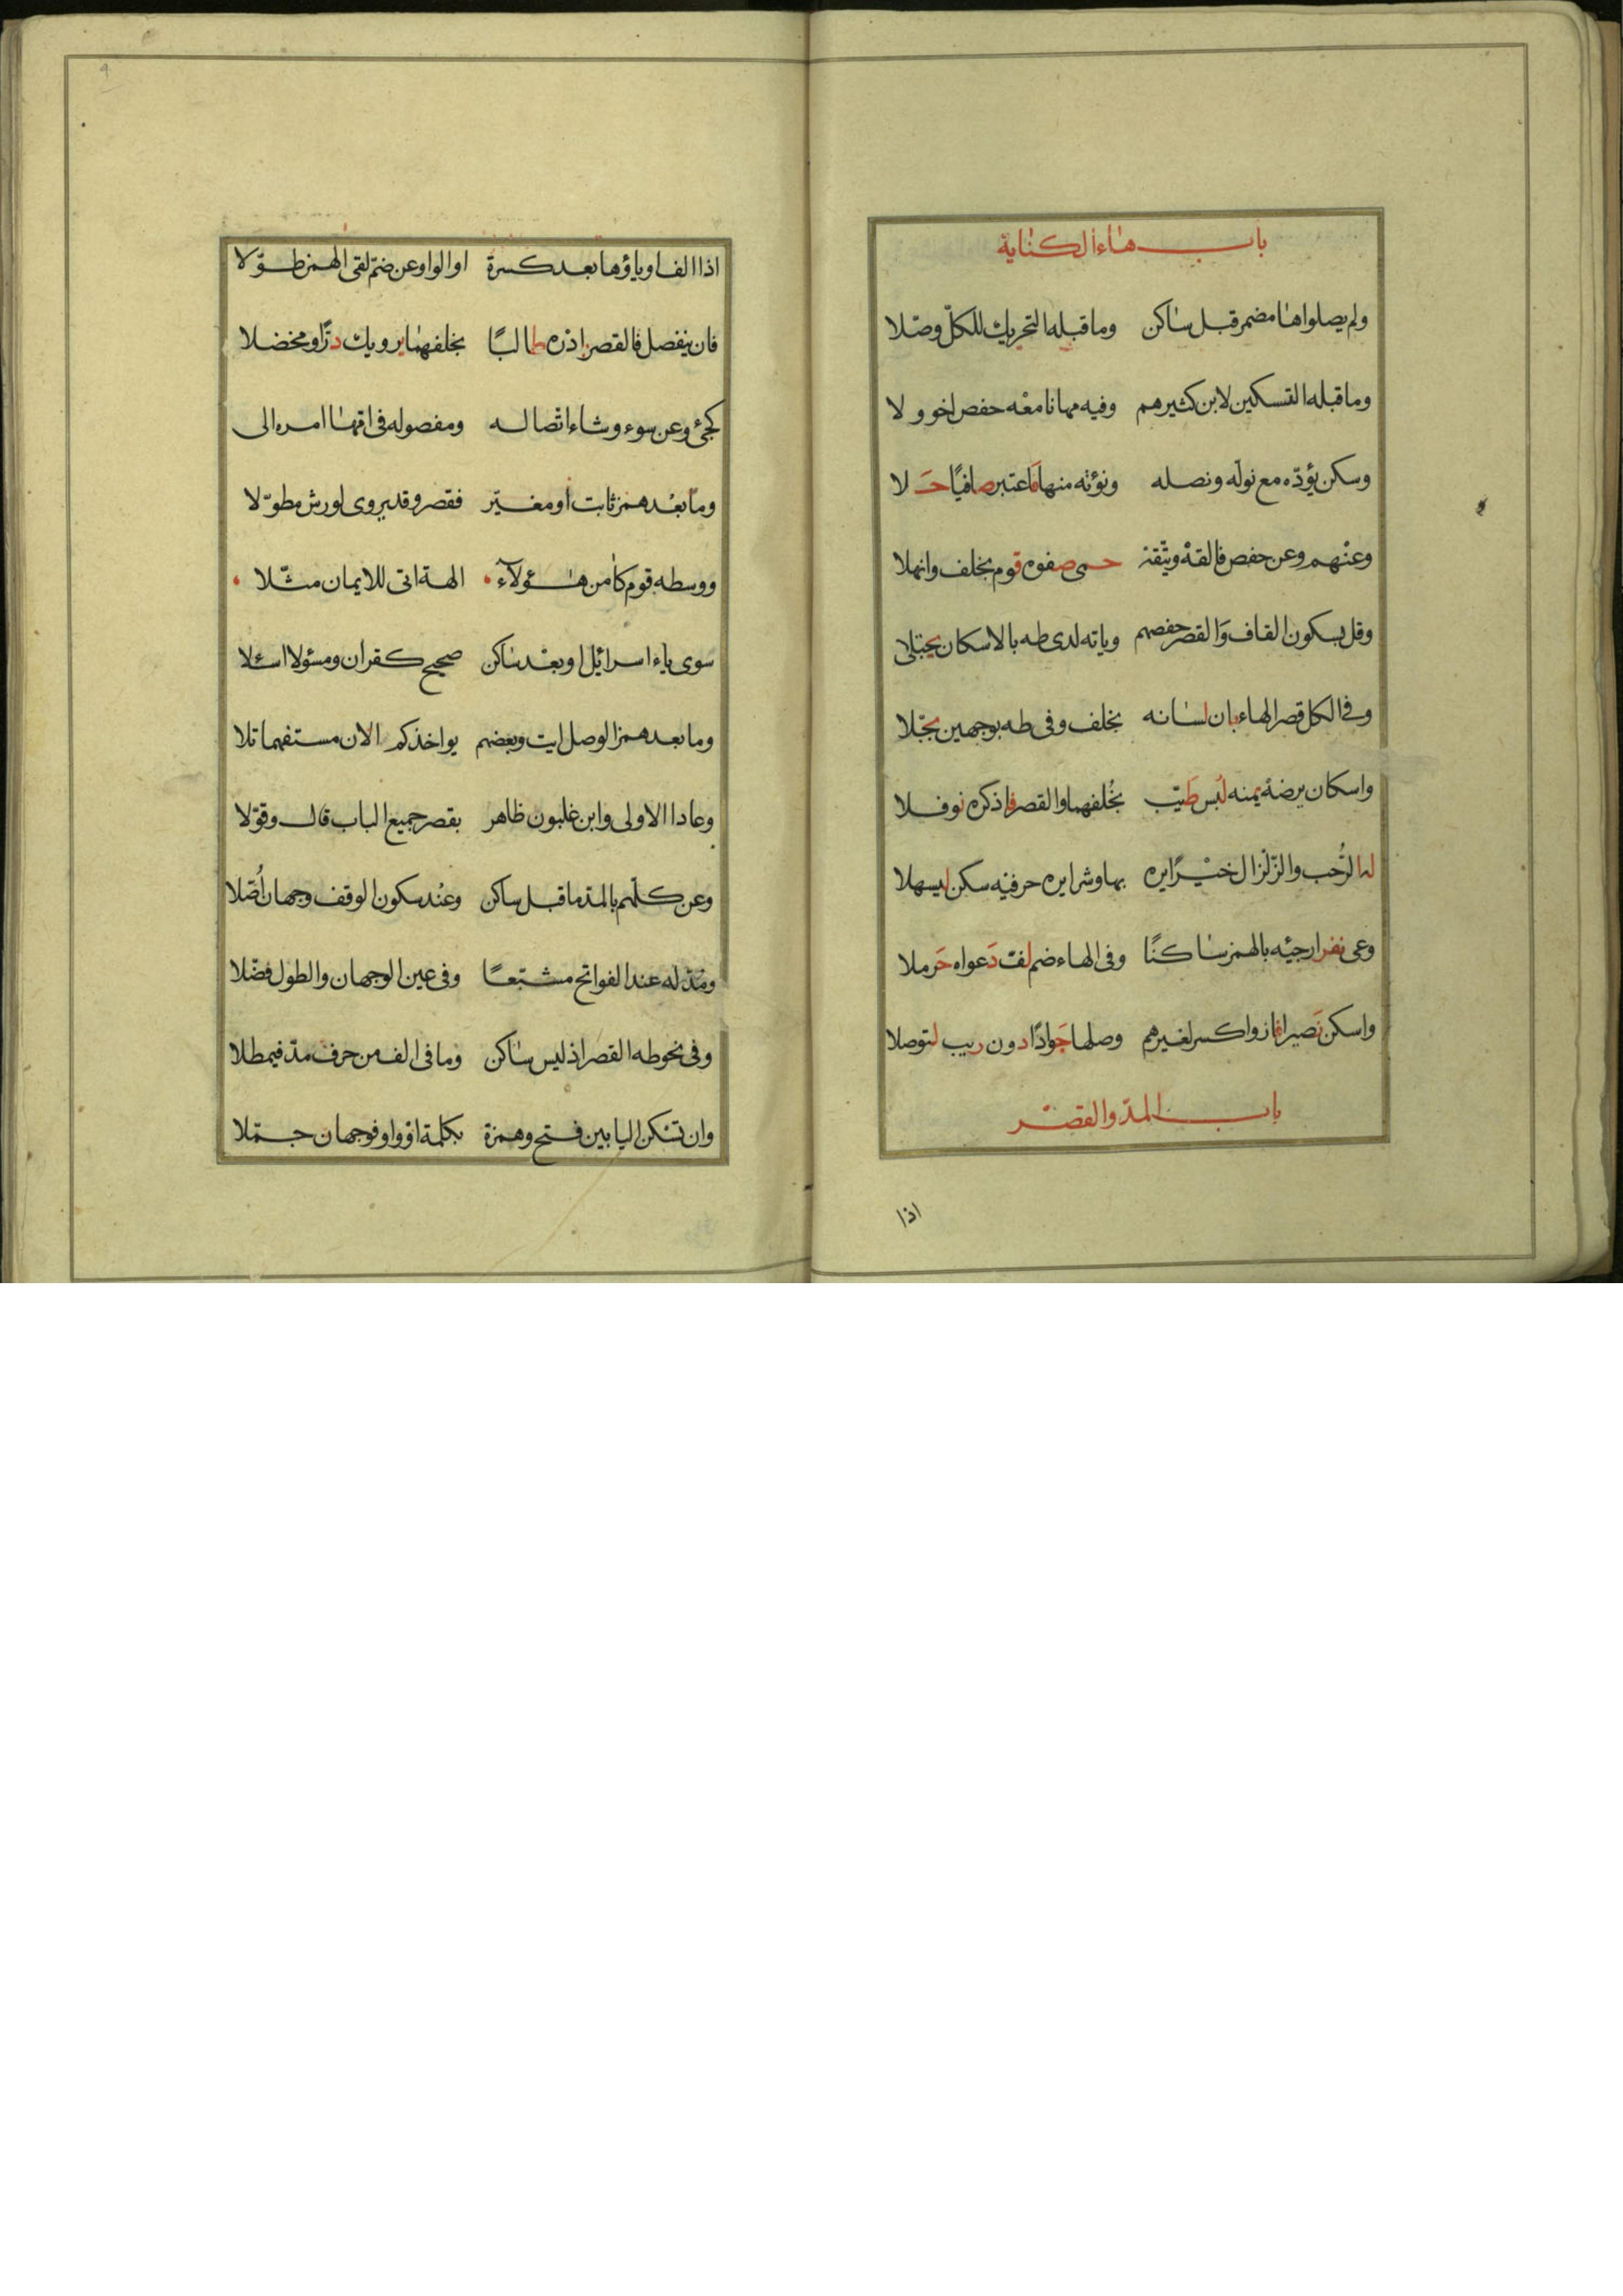 باب هاء الكناية
ولم يصلوا ها مضمر قبل ساكن وما قبله التحريك للكلّ وصّلا
وما قبله التسكين لابن كثيرهم وفيه مهانا معْه حفص اخو ولا
وسكن يؤدّه مع نولّه ونصله ونؤته منها فَاعتبر صافيًا حَلا
وعنْهم وعن حفص فالقهْ ويتّقهْ حمى صفوه قوم بخلف وانهلا
وقل بسكون القاف وَالقصر حفصهم وياته لدى طه بالاسكان يجتلى
وفى الكل قصر الهاء بان لسانه بخلف وفى طه بوجهين بجّلا
واسكان يرضهْ يمنه لُبس طَيّب بخُلفهما والقصر فاذكره نوفلا
له الرُّحب والزّلزال خيْرًا يره بها وشرا يره حرفيْه سكن ليسهلا
وعى نفر ارجئه بالهمز ساكنًا وفى الهاء ضم لفّ دَعواه حَرملا
واسكن نَصيرا فاز واكسر لغيرهم وصلها جَوادًا دون ريب لتوصلا
باب المدّ والقصر
اذا
اذا الف او ياؤها بعد كسرة او الواو عن ضمّ لقى الهمز طوّلا
فان ينفصل فالقصر بادْره طالبًا بخلفهما يرويك درًّا ومخضلا
كجئ وعن سوء وشاء اتّصاله ومفصوله فى امّها امره الى
وما بعْد همز ثابت او مغيّر فقصر وقد يروى لورش مطوّلا
ووسطه قوم كآمن هؤلآء الهة اتى للايمان مثّلا
سوى ياء اسرائيل او بعْد ساكن صحيح كقران ومسئولا اسئلا
وما بعد همز الوصل ايت وبعضهم يواخذكم الان مستفهما تلا
وعادا الاولى وابن غلبون ظاهر بقصر جميع الباب قال وقوّلا
وعن كلّهم بالمدّ ما قبل ساكن وعنْد سكون الوقف وجهان اُصّلا
ومُدّ له عند الفواتح مشبعًا وفى عين الوجهان والطول فضّلا
وفى نحو طه القصر اذ ليس ساكن وما فى الف من حرف مدّ فيمطلا
وان تسكن اليا بين فتح وهمزة بكلمة اوْ واو فوجهان جمّلا